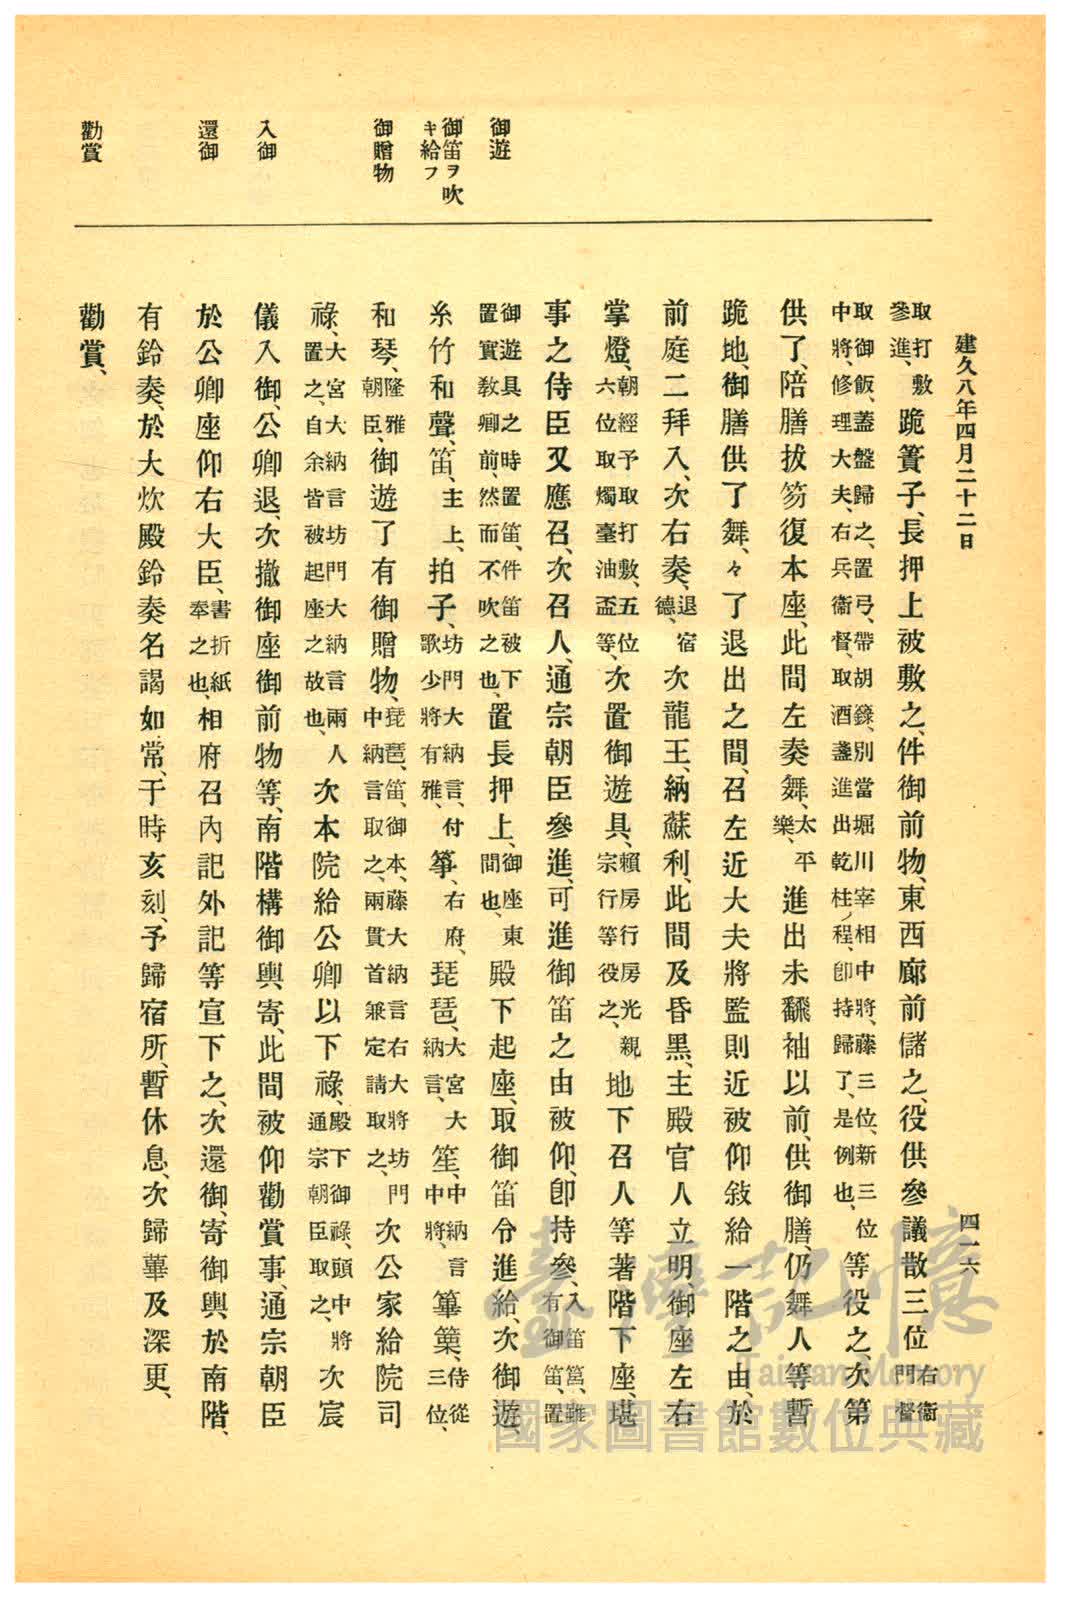 建久八年四月二十二日
四一六
御遊
御笛ヲ吹
キ給フ
御贈物
入御
還御
勸賞
取打敷參進、跪簀子、長押上被敷之、件御前物、東西廊前儲之、役供參議散三位右衞門督
取御飯、蓋盤歸之、置弓、帶胡籙、別當堀川宰相中將、藤三位、新三位中將、修理大夫、右兵衞督、取酒盞進出乾柱ノ程、卽持歸了、是例也、等役之、次第
供了、陪膳拔笏復本座、此間左奏舞、太平樂、進出未飜袖以前、供御膳、仍舞人等暫
跪地、御膳供了舞、々了退出之間、召左近大夫將監則近被仰敍給一階之由、於
前庭二拜入、次右奏、退宿德、次龍王、納蘇利、此間及昏黑、主殿官人立明、御座左右
掌燈、朝經予取打敷、五位六位取燭臺油盃等、次置御遊具、賴房行房光親宗行等役之、地下召人等著階下座、堪
事之侍臣又應召、次召人、通宗朝臣參進、可進御笛之由被仰、卽持參、入笛筥、雖有御笛、置
御遊具之時置笛、件笛被下置實敎卿前、然而不吹之也、置長押上、御座東間也、殿下起座、取御笛令進給、次御遊、
糸竹和聲、笛、主上、拍子、坊門大納言、付歌少將有雅、箏、右府、琵琶、大宮大納言、笙、中納言中將、篳篥、侍從三位、
和琴、隆雅朝臣、御遊了有御贈物、琵琶、笛、御本、藤大納言右大將坊門中納言取之、兩貫首兼定請取之、次公家給院司
祿、大宮大納言坊門大納言兩人置之、自余皆被起座之故也、次本院給公卿以下祿、殿下御祿、頭中將通宗朝臣取之、次宸
儀入御、公卿退、次撤御座御前物等、南階構御輿寄、此間被仰勸賞事、通宗朝臣
於公卿座仰右大臣、書折紙奉之也、相府召內記外記等宣下之、次還御、寄御輿於南階、
有鈴奏、於大炊殿鈴奏名謁如常、于時亥刻、予歸宿所、暫休息、次歸蓽及深更、
勸賞、
臺灣記憶
Taiwan Memory
國家圖書館數位典藏